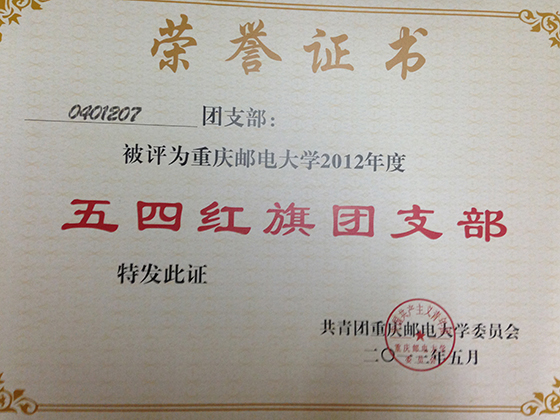 荣誉证书
0401207 团支部：
被评为重庆邮电大学2012年度
五四红旗团支部
特发此证
共青团重庆邮电大学委员会
二〇一 年五月
共产主义青
重庆邮电大学